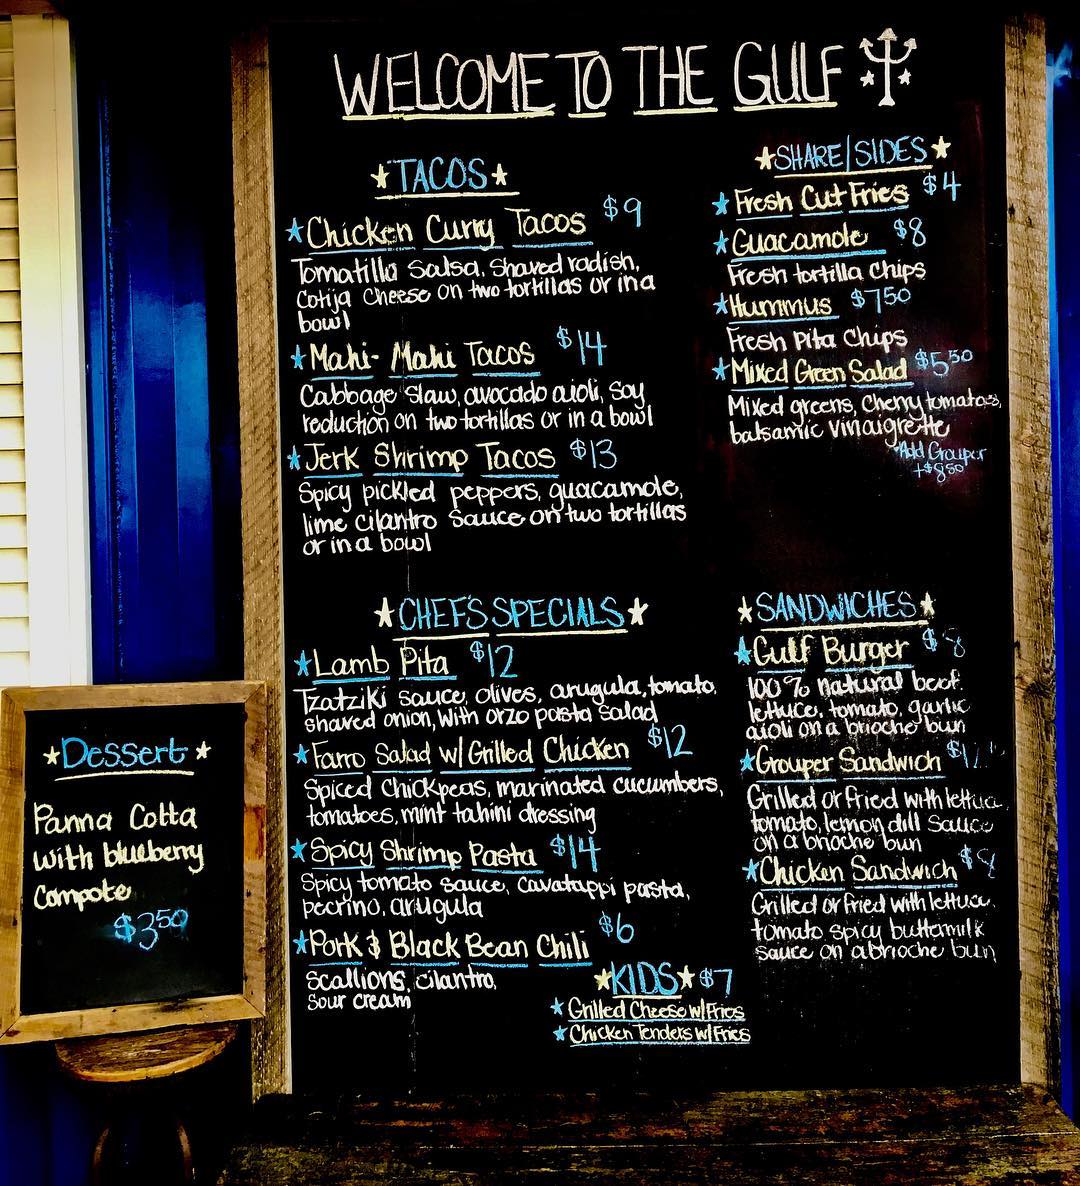 WELCOME TO THE GULF
TACOS
Chicken Curry Tacos $9
Tomatillo Salsa, Shaved radish,
Cotija Cheese on two tortillas or in a
bowl
Mahi-Mahi Tacos $14
Cabbage Slaw, avocado aioli, Soy
reduction on two tortillas or in a bowl
Jerk Shrimp Tacos $13
Spicy pickled peppers, guacamole,
lime cilantro Sauce on two tortillas
or in a bowl
SHARE/SIDES
Fresh Cut Fries $4
Guacamole $8
Fresh tortilla Chips
Hummus $7.50
Fresh Pita Chips
Mixed Green Salad $5.50
Mixed greens, Cherry tomatoes,
balsamic vinaigrette
*Add Grouper
+$8.50
CHEF'S SPECIALS
Lamb Pita $12
Tzatziki sauce, olives, arugula, tomato,
shaved onion, with orzo pasta salad
Farro Salad w/Grilled Chicken $12
Spiced Chickpeas, marinated cucumbers,
tomatoes, mint tahini dressing
Spicy Shrimp Pasta $14
Spicy tomato sauce, Cavatappi pasta,
pecrino, arugula
Pork & Black Bean Chili $6
Scallions, cilantro,
Sour cream
KIDS $7
Grilled Cheese w/Fries
Chicken Tenders w/Fries
SANDWICHES
Gulf Burger $8
100% natural beef,
lettuce, tomato, garlic
aioli on a brioche bun
Grouper Sandwich
Grilled or fried with lettuce,
tomato, lemon dill Sauce
on a brioche bun
Chicken Sandwich
Grilled or fried with lettuce,
tomato spicy buttermilk
sauce on a brioche bun
Dessert
Panna Cotta
with blueberry
Compote
$3.50